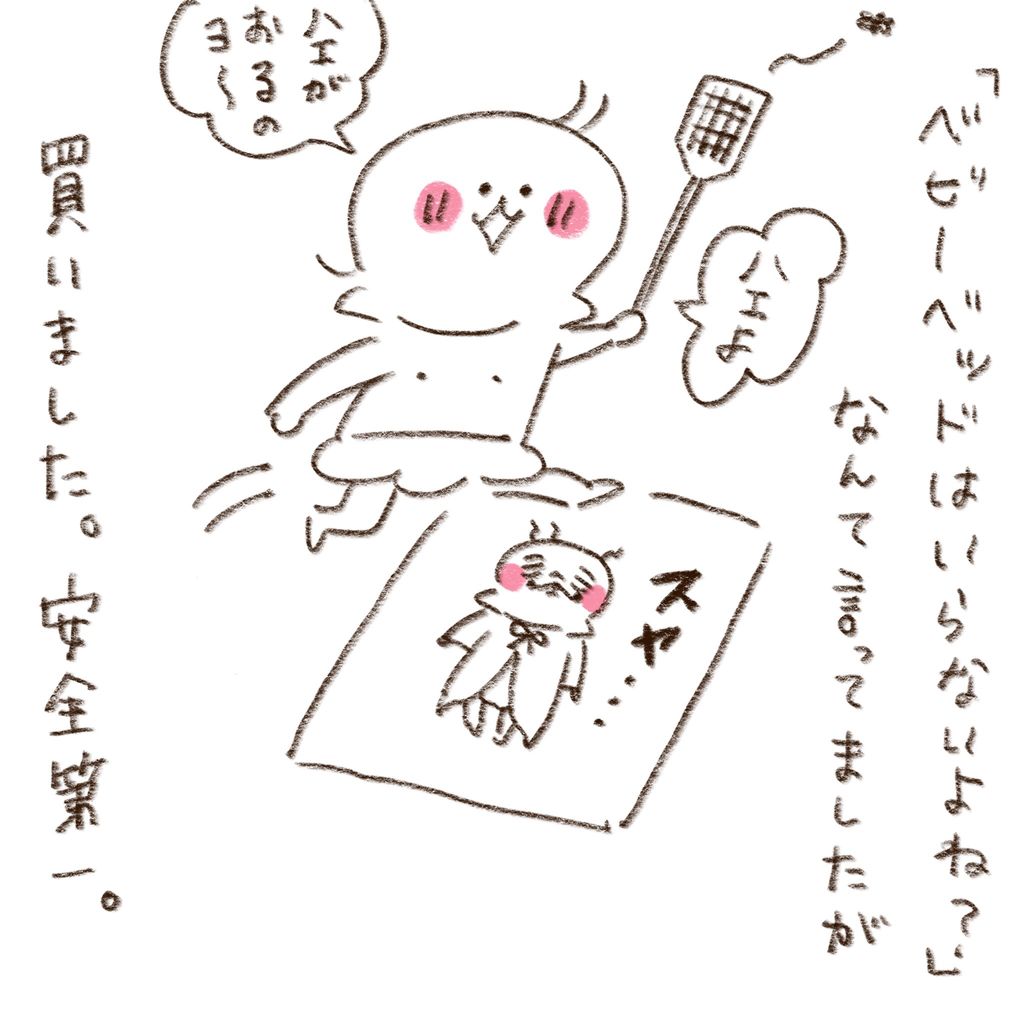 「ベビーベッドはいらないよね？」
なんて言ってましたが
ハエよ
ハエが
おるの
ヨ〜
スヤ…
買いました。安全第一。